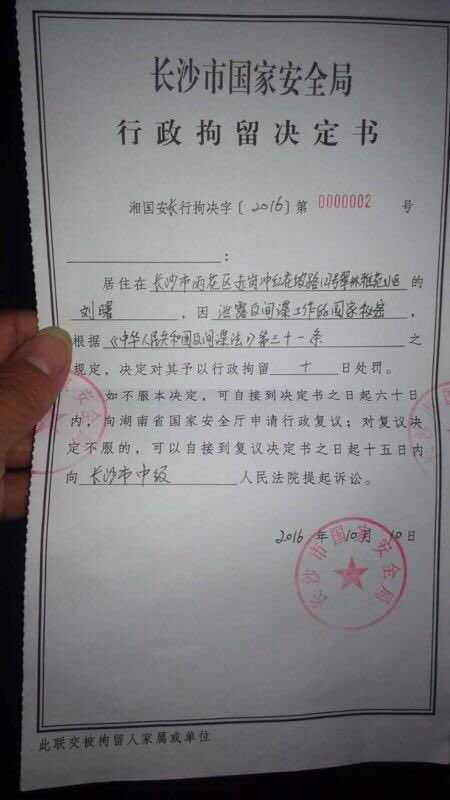 长沙市国家安全局
行政拘留决定书
湘国安长行拘决字〔2016〕第 0000002 号
:
居住在长沙市雨花区赤岗冲红花坡路12号翠林雅苑小区的
刘曙,因泄露反间谍工作的国家秘密,
根据《中华人民共和国反间谍法》第三十一条之
规定,决定对其予以行政拘留十日处罚。
如不服本决定,可自接到决定书之日起六十日
内,向湖南省国家安全厅申请行政复议;对复议决
定不服的,可以自接到复议决定书之日起十五日内
向长沙市中级人民法院提起诉讼。
2016年10月10日
长沙市国家安全局
此联交被拘留人家属或单位